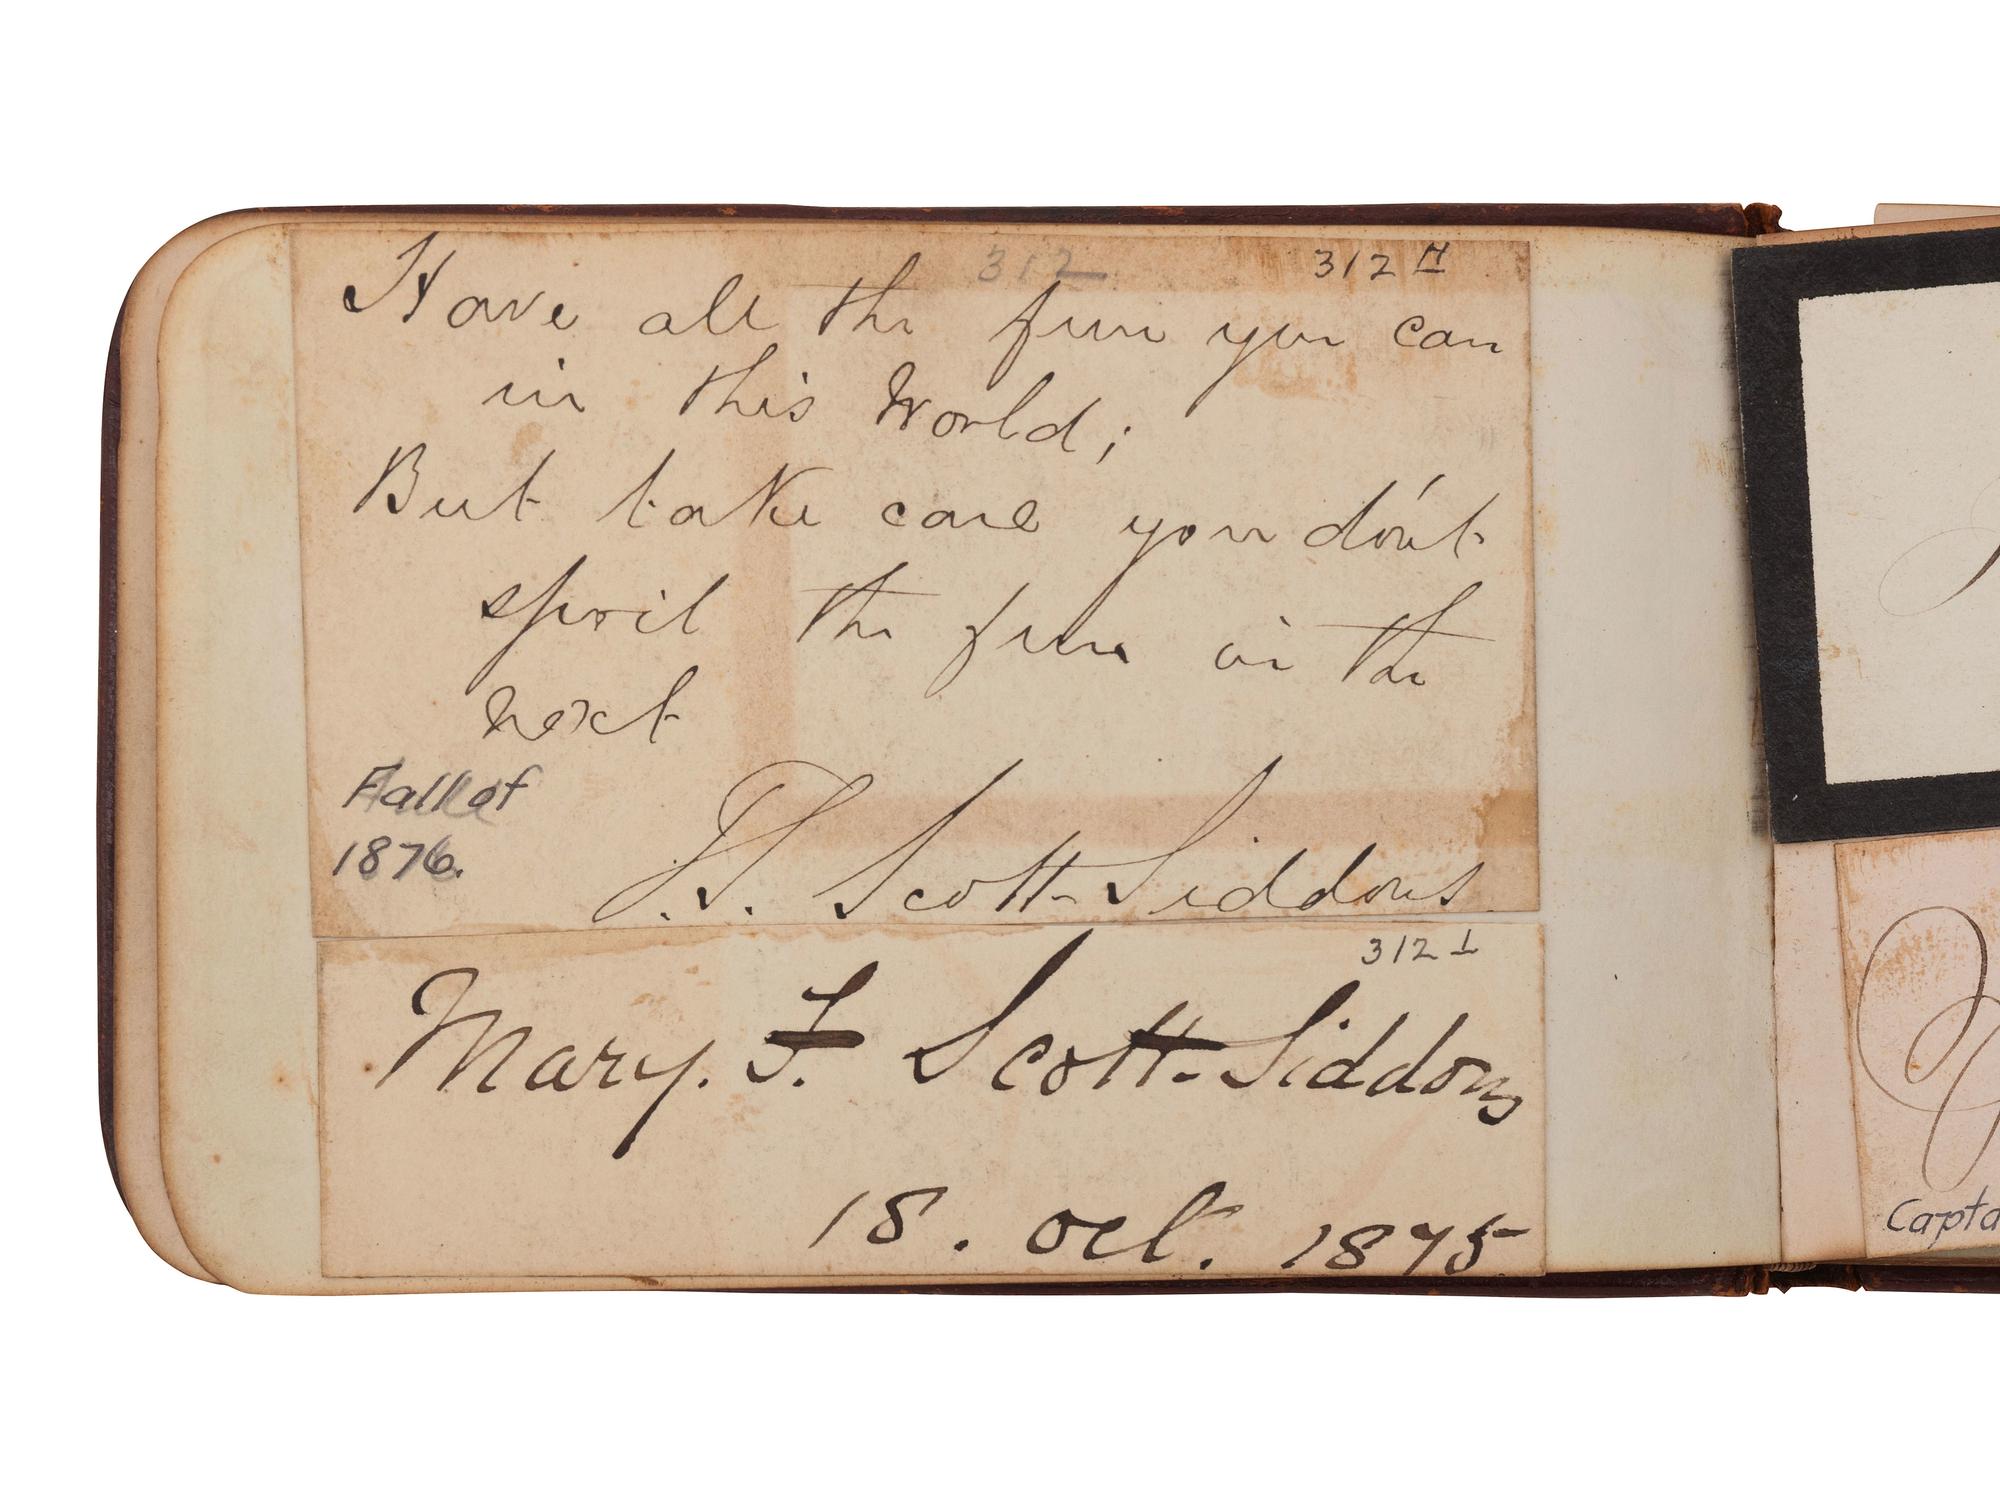 312 312 H
Have all the fun you can
in this World;
But take care you dont
spoil the fun in the
next
Fall of
1876.
T. S. Scott-Siddons.
312 I
Mary. F. Scott-Siddons
18. oct. 1875.
Capta